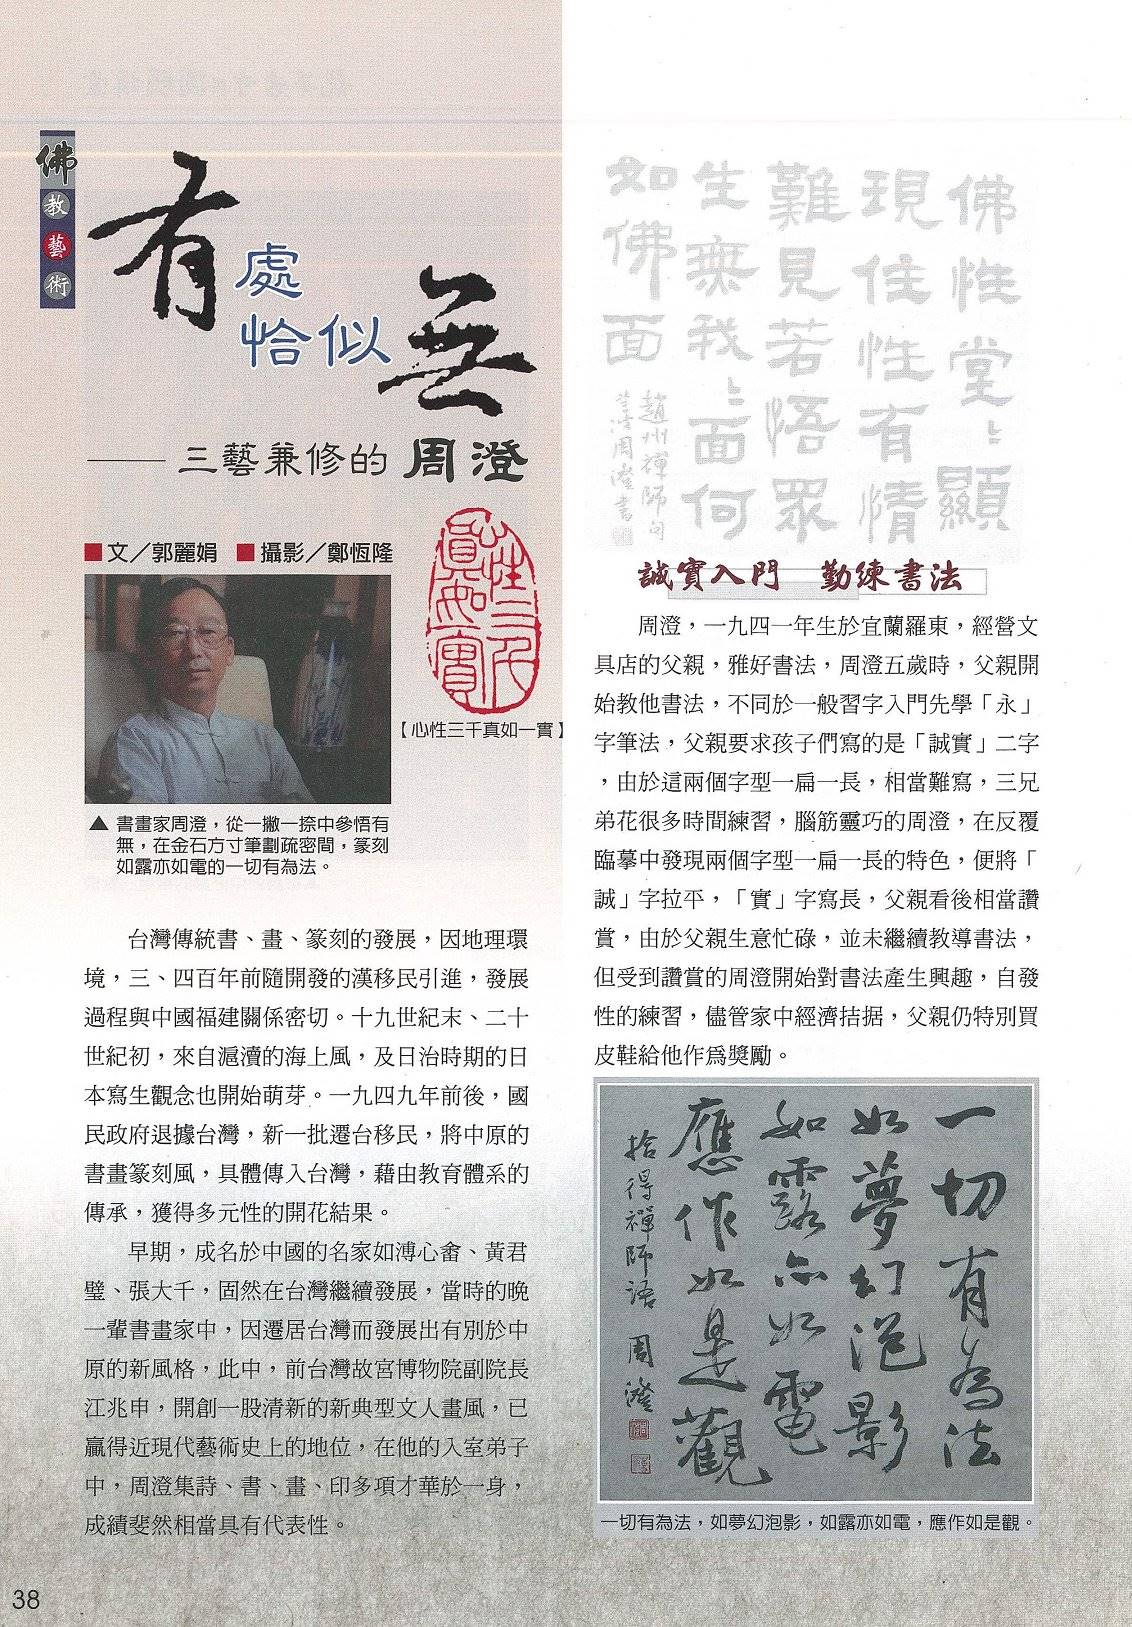 佛教藝術
有處恰似無
——三藝兼修的周澄
■文／郭麗娟 ■攝影／鄭恆隆
心性三千真如一實
【心性三千真如一實】
▲ 書畫家周澄，從一撇一捺中參悟有
無，在金石方寸筆劃疏密間，篆刻
如露亦如電的一切有為法。
台灣傳統書、畫、篆刻的發展，因地理環
境，三、四百年前隨開發的漢移民引進，發展
過程與中國福建關係密切。十九世紀末、二十
世紀初，來自滬瀆的海上風，及日治時期的日
本寫生觀念也開始萌芽。一九四九年前後，國
民政府退據台灣，新一批遷台移民，將中原的
書畫篆刻風，具體傳入台灣，藉由教育體系的
傳承，獲得多元性的開花結果。
早期，成名於中國的名家如溥心畬、黃君
璧、張大千，固然在台灣繼續發展，當時的晚
一輩書畫家中，因遷居台灣而發展出有別於中
原的新風格，此中，前台灣故宮博物院副院長
江兆申，開創一股清新的新典型文人畫風，已
贏得近現代藝術史上的地位，在他的入室弟子
中，周澄集詩、書、畫、印多項才華於一身，
成績斐然相當具有代表性。
38
佛性堂堂顯
現住性有情
難見若悟眾
生無我我面何
如佛面
趙州禪師句
周澄書
誠實入門 勤練書法
周澄，一九四一年生於宜蘭羅東，經營文
具店的父親，雅好書法，周澄五歲時，父親開
始教他書法，不同於一般習字入門先學「永」
字筆法，父親要求孩子們寫的是「誠實」二字
，由於這兩個字型一扁一長，相當難寫，三兄
弟花很多時間練習，腦筋靈巧的周澄，在反覆
臨摹中發現兩個字型一扁一長的特色，便將「
誠」字拉平，「實」字寫長，父親看後相當讚
賞，由於父親生意忙碌，並未繼續教導書法，
但受到讚賞的周澄開始對書法產生興趣，自發
性的練習，儘管家中經濟拮据，父親仍特別買
皮鞋給他作為獎勵。
一切有為法
如夢幻泡影
如露亦如電
應作如是觀
拾得禪師語 周澄
一切有為法，如夢幻泡影，如露亦如電，應作如是觀。